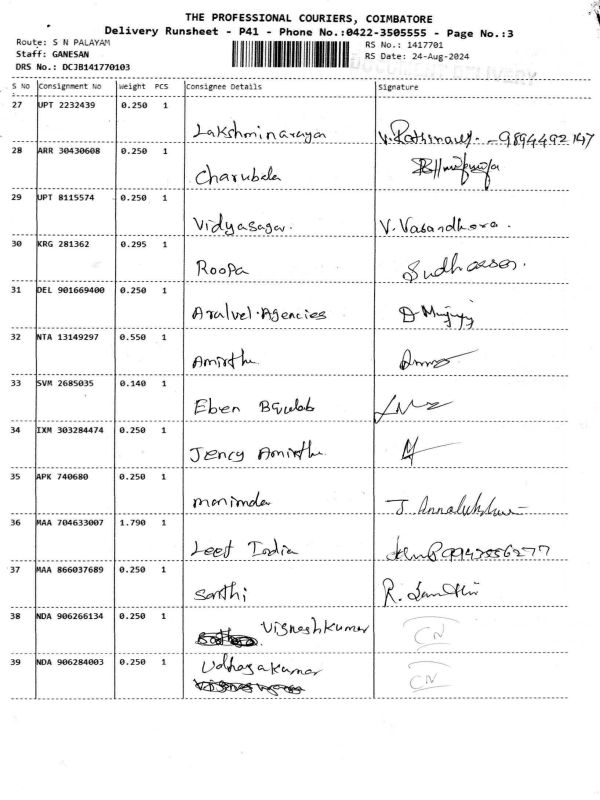 THE PROFESSIONAL COURIERS, COIMBATORE
Delivery Runsheet - P41 - Phone No.:0422-3505555 - Page No.:3
Route: S N PALAYAM
Staff: GANESAN
DRS No.: DCJB141770103
RS No.: 1417701
RS Date: 24-Aug-2024
S No Consignment No Weight PCS Consignee Details Signature
27 UPT 2232439 0.250 1
Lakshminaraya V. -9894492147
28 ARR 30430608 0.250 1
Charubala
29 UPT 8115574 0.250 1
Vidyasagar. V. Vasandhara.
30 KRG 281362 0.295 1
Roopa
31 DEL 901669400 0.250 1
Aralvel.Agencies
32 NTA 13149297 0.550 1
Amirtha
33 SVM 2685035 0.140 1
Eben
34 IXM 303284474 0.250 1
Jency Amirtha
35 APK 740680 0.250 1
manimda J.
36 MAA 704633007 1.790 1
Leef India 9943556277
37 MAA 866037689 0.250 1
Santhi R. Santhi
38 NDA 906266134 0.250 1
Visneshkumar CN
39 NDA 906284003 0.250 1
Udhayakumar CN